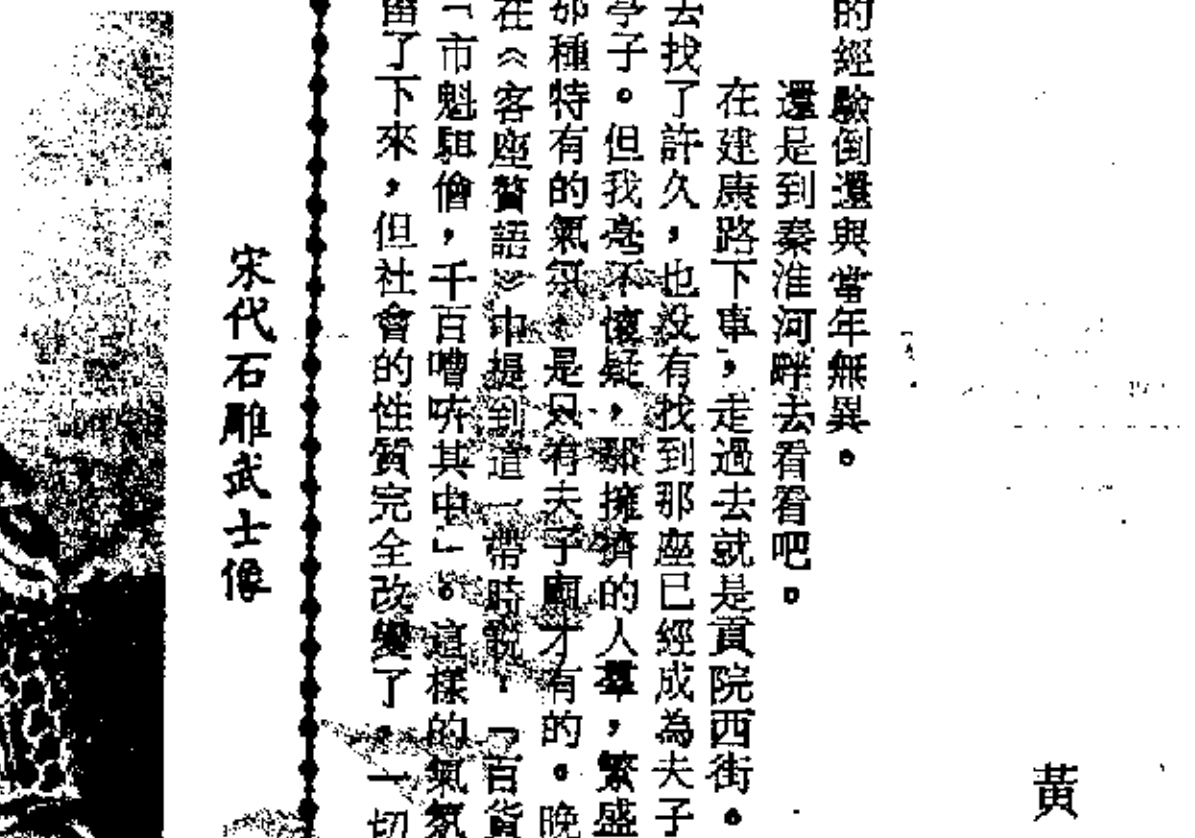 黃
的經驗倒還與當年無異。
還是到秦淮河畔去看看吧。
在建康路下車,走過去就是貢院西街。
去找了許久,也没有找到那座已經成為夫子
亭子。但我毫不懷疑,那擁擠的人羣,繁盛
那種特有的氣氛,是只有夫子廟才有的。晚
在《客座贅語》中提到這一帶時説:「百貨
市魁駔儈,千百嘈其中」。這樣的氣氛
留了下來,但社會的性質完全改變了。一切
宋代石雕武士像